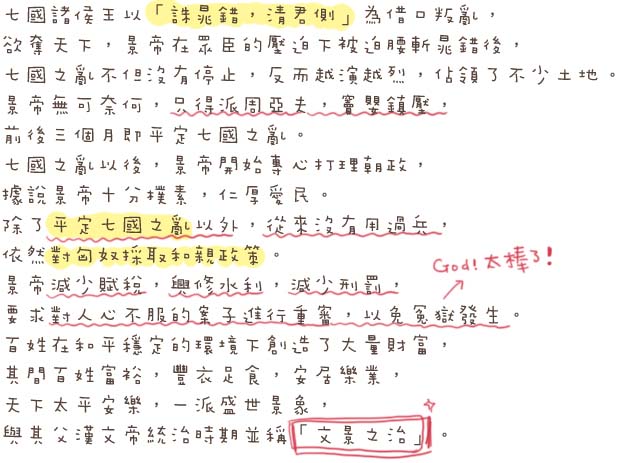 七國諸侯王以「誅晁錯，清君側」為借口叛亂，
欲奪天下，景帝在眾臣的壓迫下被迫腰斬晁錯後，
七國之亂不但沒有停止，反而越演越烈，佔領了不少土地。
景帝無可奈何，只得派周亞夫，竇嬰鎮壓，
前後三個月即平定七國之亂。
七國之亂以後，景帝開始專心打理朝政，
據說景帝十分樸素，仁厚愛民。
除了平定七國之亂以外，從來沒有用過兵，
依然對匈奴採取和親政策。
God! 太棒了!
景帝減少賦稅，興修水利，減少刑罰，
要求對人心不服的案子進行重審，以免冤獄發生。
百姓在和平穩定的環境下創造了大量財富，
其間百姓富裕，豐衣足食，安居樂業，
天下太平安樂，一派盛世景象，
與其父漢文帝統治時期並稱「文景之治」。